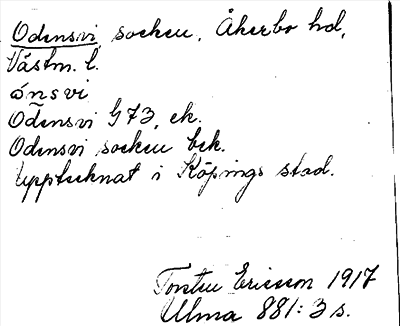 Odensvi, socken, Åkerbo hd,
Västm. l.
ónsvi
Odensvi G 73, ek.
Odensvi socken bek.
Upptecknat i Köpings stad.
Torsten Ericsson 1917
Ulma 881:3 s.